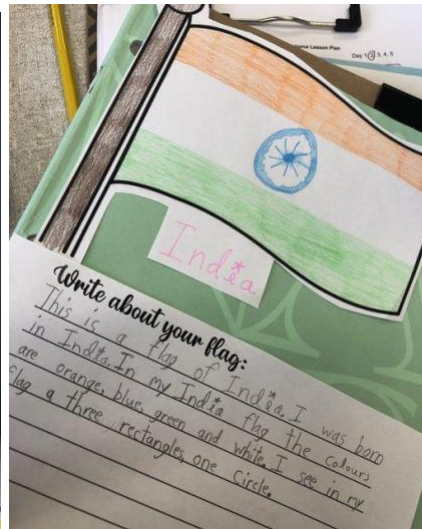 Lesson Plan
Day 1 2 3, 4, 5
India
Write about your flag:
This is a flag of India. I was born
in India. In my India flag the colours
are orange, blue, green and white. I see in my
flag a three rectangles, one circle.